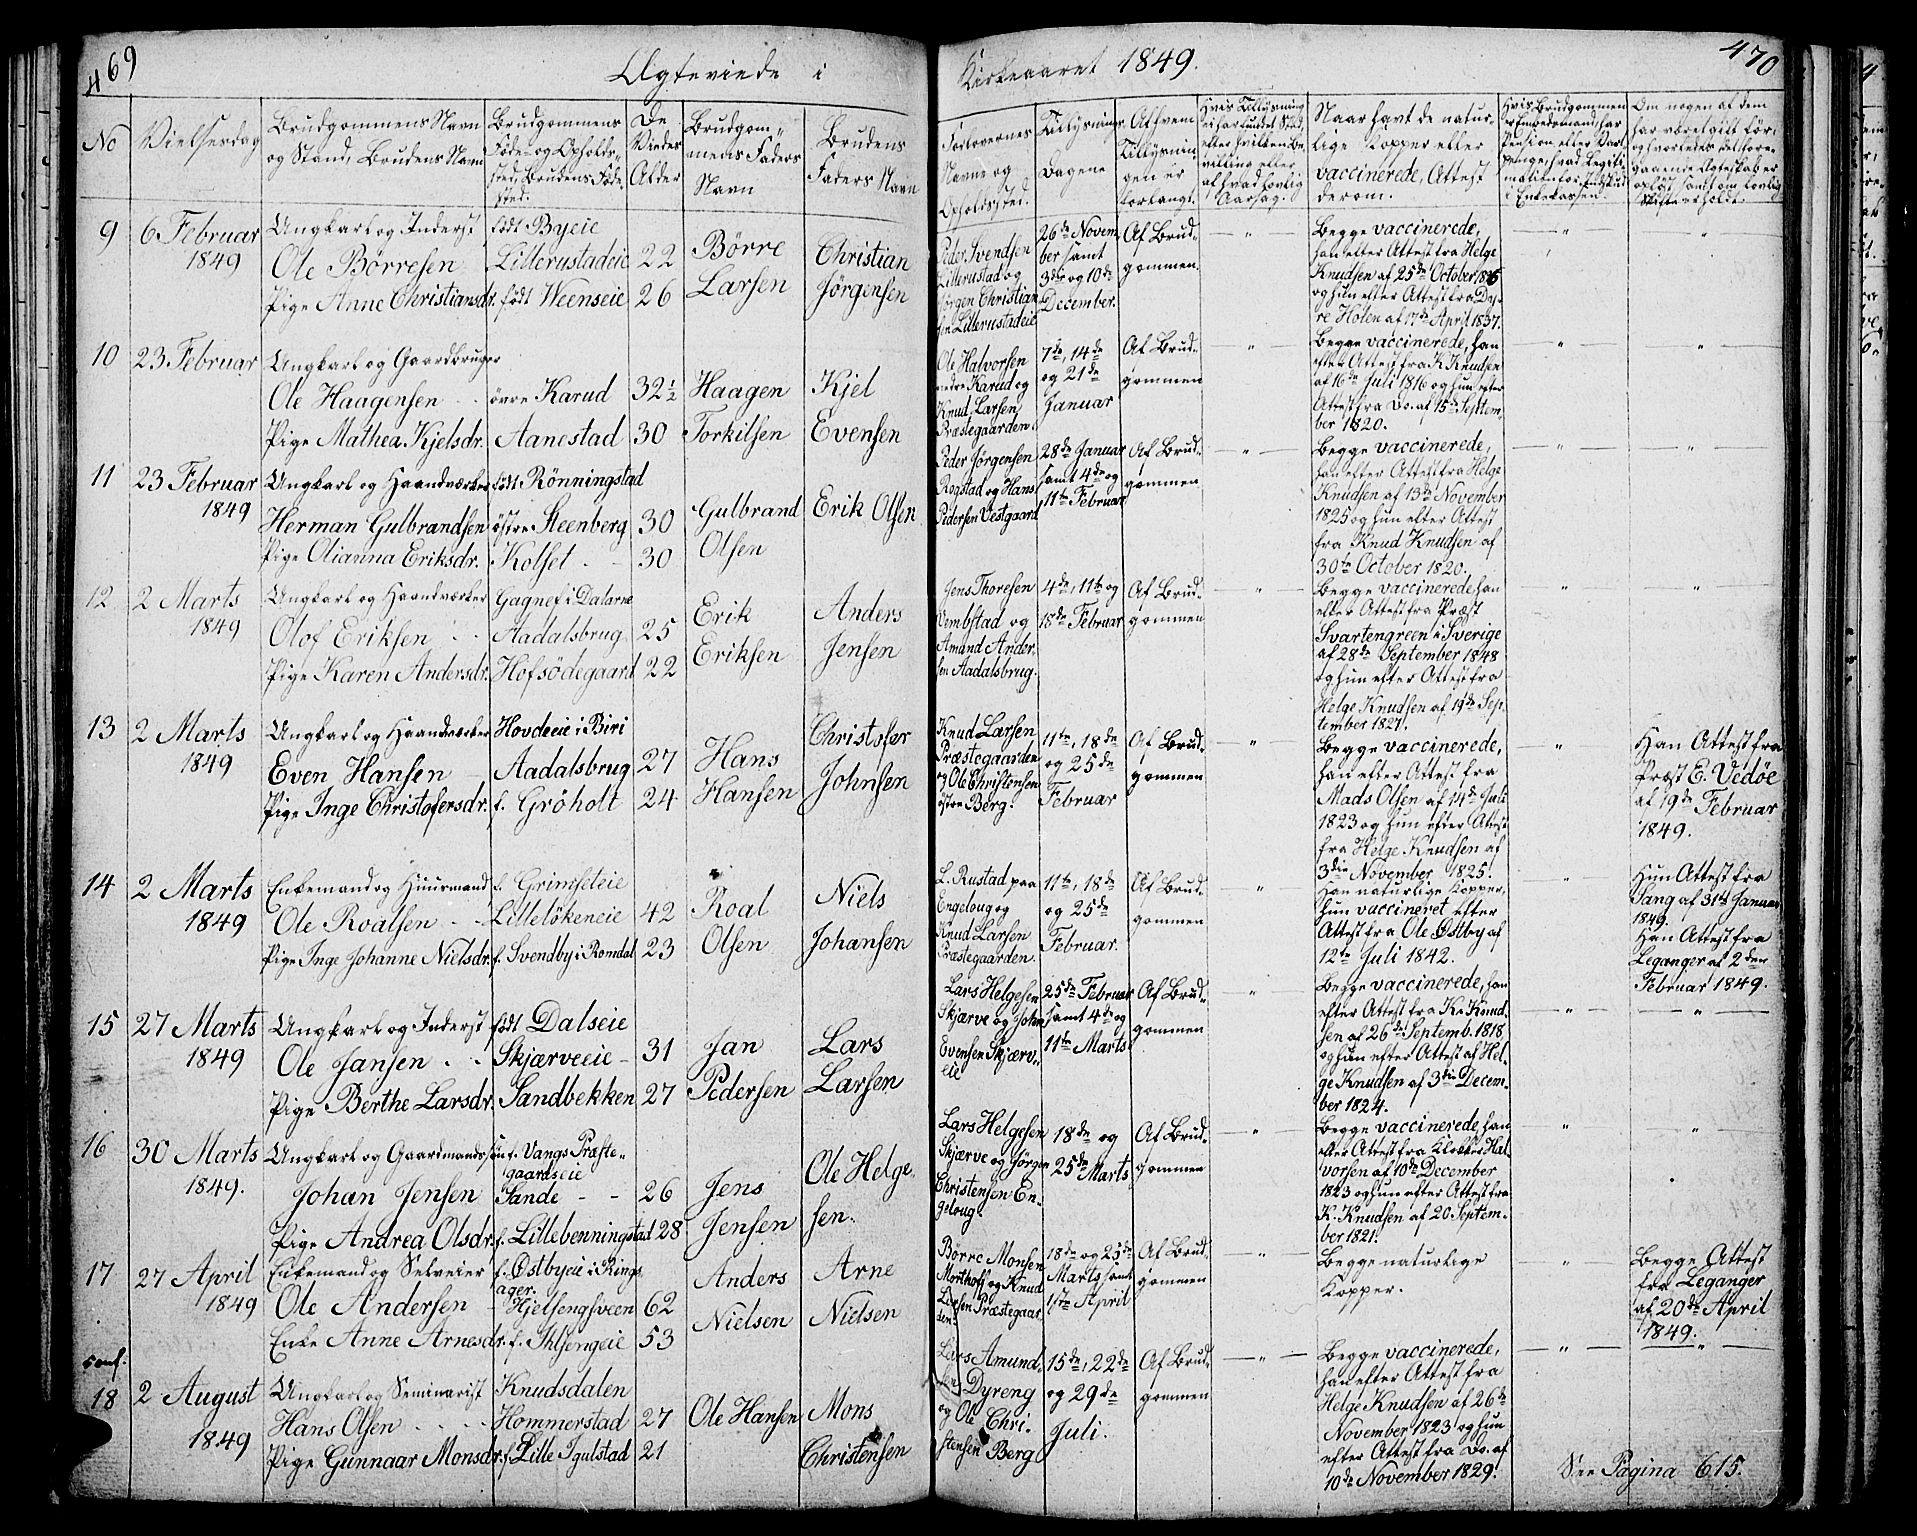 469
Ægteviede i
Kirkeaaret 1849.
470
No
Vielsesdag
Brudgommens Navn
og Stand, Brudens Navn
Brudgommens
Føde- og Opholds-
sted, Brudens Føde-
sted.
De
Viedes
Alder
Brudgom-
mens Faders
Navn
Brudens
Faders Navn
Forlovernes
Navne og
Opholdssted.
Tillysnings
Dagene
Af hvem
Tillysnin-
gen er
forlangt.
Hvis Tillysning
ei har fundet Sted,
efter hvilken Be-
villing eller
af hvad lovlig
Aarsag.
Naar havt de natur-
lige Kopper eller
vaccinerede, Attest
derom.
Hvis Brudgommen
er Embedsmand, har
Pension eller Var-
penge, hvad Legiti-
mation for Indskud
i Enkekassen.
Om nogen af dem
har været gift før,
og hvorledes det fore-
gaaende Ægteskab er
opløst samt om lovlig
Skifte er holdt.
9
6 Februar
1849
Ungkarl og Inderst
Ole Börresen
Pige Anne Christiansdr.
født Byeie
Lillerustadeie
født Weenseie
22
26
Börre
Larsen
Christian
Jörgensen
Peder Svendsen
Lillerustad og
Jörgen Christian
sen Lillerustadeie
26de Novem-
ber samt
3die og 10de
December.
Af Brud-
gommen
Begge vaccinerede,
han efter Attest fra Helge
Knudsen af 25de October 1826
og hun efter Attest fra Dy-
re Holen af 17de April 1837.
10
23 Februar
Ungkarl og Gaardbruger
Ole Haagensen
Pige Mathea Kjelsdr.
övre Karud
Aanestad
32½
30
Haagen
Torkilsen
Kjel
Evensen
Ole Halvorsen
nedre Karud og
Knud Larsen
Præstegaarden.
7de, 14de
og 21de
Januar
Af Brud-
gommen
Begge vaccinerede, han
efter Attest fra K. Knudsen
af 16de Juli 1816 og hun efter
Attest fra Do. af 15de Septem-
ber 1820.
11
23 Februar
1849
Ungkarl og Haandværker
Herman Gulbrandsen
Pige Olianna Eriksdr.
født Rönningstad
östre Steenberg
Kolset
30
30
Gulbrand
Olsen
Erik Olsen
Peder Jörgensen
Rogstad og Hans
Pedersen Vestgaard
28de Januar
samt 4de og
11te Februar
Af Brud-
gommen
Begge vaccinerede,
han efter Attest fra Helge
Knudsen af 13de November
1825 og hun efter Attest
fra Knud Knudsen af
30te October 1820.
12
2 Marts
1849
Ungkarl og Haandværker
Olof Eriksen
Pige Karen Andersdr.
Gagnef i Dalarne
Aadalsbrug
Hofsödegaard
25
22
Erik
Eriksen
Anders
Jensen
Jens Thoresen
Vembstad og
Amund Ander-
sen Aadalsbrug.
4de, 11te og
18de Februar
Af Brud-
gommen
Begge vaccinerede, han
efter Attest fra Præst
Svartengreen i Sverige
af 28de September 1848
og hun efter Attest fra
Helge Knudsen af 19de Sep-
tember 1827.
13
2 Marts
1849
Ungkarl og Haandværker
Even Hansen
Pige Inge Christofersdr.
Hovdeeie i Biri
Aadalsbrug
f. Gröholt
27
24
Hans
Hansen
Christofer
Johnsen
Knud Larsen
Præstegaarden
og Ole Christensen
östre Berg.
11te, 18de
og 25de
Februar
Af Brud-
gommen
Begge vaccinerede,
han efter Attest fra
Mads Olsen af 14de Juli
1823 og hun efter Attest
fra Helge Knudsen af
3die November 1825.
Han Attest fra
Præst E. Vedöe
af 19de Februar
1849.
14
2 Marts
1849
Enkemand og Huusmand
Ole Roalsen
Pige Inge Johanne Nielsdr.
f. Grimseteie
Lillelökeneie
f. Svendby i Romdal
42
23
Roal
Olsen
Niels
Johansen
L. Rustad paa
Engeloug og
Knud Larsen
Præstegaarden.
11te, 18de
og 25de
Februar.
Af Brud-
gommen
Han naturlige Kopper,
hun vaccineret efter
Attest fra Ole Østby af
12te Juli 1842.
Hun Attest fra
Sang af 31te Januar
1849.
Han Attest fra
Leganger af 2den
Februar 1849.
15
27 Marts
1849
Ungkarl og Inderst
Ole Jansen
Pige Berthe Larsdr.
født Dalseie
Skjærveeie
Sandbekken
31
27
Jan
Pedersen
Lars
Larsen
Lars Helgesen
Skjærve og John
Evensen Skjærv-
eie
25de Februar
samt 4de og
11te Marts
Af Brud-
gommen
Begge vaccinerede, han
efter Attest fra K. Knud-
sen af 26de Septemb. 1818
og hun efter Attest af Hel-
ge Knudsen af 3die Decem-
ber 1824.
16
30 Marts
1849.
Ungkarl og Gaardmandssön
Johan Jensen
Pige Andrea Olsdr.
f. Vangs Præste-
gaardseie
Sande
f. Lillebenningstad
26
28
Jens
Jensen
Ole Helge-
sen.
Lars Helgesen
Skjærve og Jörgen
Christensen En-
geloug.
18de og
25de Marts
Af Brud-
gommen
Begge vaccinerede, han
efter Attest fra Klokker Hal-
vorsen af 10de December
1823 og hun efter Attest fra
K. Knudsen af 20. Septem-
ber 1821.
17
27 April
1849
Enkemand og Selveier
Ole Andersen
Enke Anne Arnesdr.
f. Østbyeie i Rings-
ager.
Hjelsengsveen
62
53
Anders
Nielsen
Arne
Nielsen
Börre Monsen
Mortholf og Knud
Larsen Præstegaar-
den.
18de og 25de
Marts samt
1ste April
Af Brud-
gommen
Begge naturlige
Kopper.
Begge Attest
fra Leganger
af 20de April
1849.
conf.
18
2 August
1849
Ungkarl og Seminarist
Hans Olsen
Pige Gunnaar Monsdr.
Knudsdalen
Hommerstad
f. Lille Igulstad
27
21
Ole Hansen
Mons
Christensen
Lars Amund-
sen Dyreng
og Ole Chri-
stensen Berg
15de, 22de
og 29de
Juli.
Af Brud-
gommen
Begge vaccinerede,
han efter Attest fra
Helge Knudsen af 26de
November 1823 og hun
efter Attest fra Do. af
10de November 1829.
See Pagina 615.